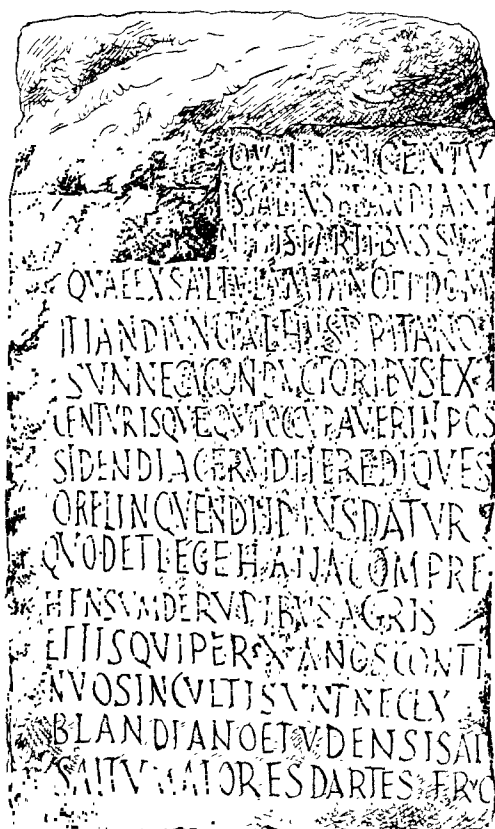 QVAE IN CENTV
ISSALTVSBLANDIANI
ISPARTIBVSSVN
QVAEEXSALTVLAMIANOETDOM
ITIANOIVNCTAETHVSDRITANO
SVNNECACONDVCTORIBVSEX
CENTVRISQVEQVIOCCVPAVERINPOS
SIDENDIACFRVIDIHEREDIQVES
ORELINQVENDIIDIVSDATVR
QVODETLEGEHAIIACOMPRE
HENSVMDERVDIBVSAGRIS
ETIISQVIPERXANOSCONTI
NVOSINCVLTISVNTNECEX
BLANDIANOETVDENSISAL
SALTVMAIORESPARTES FRVC